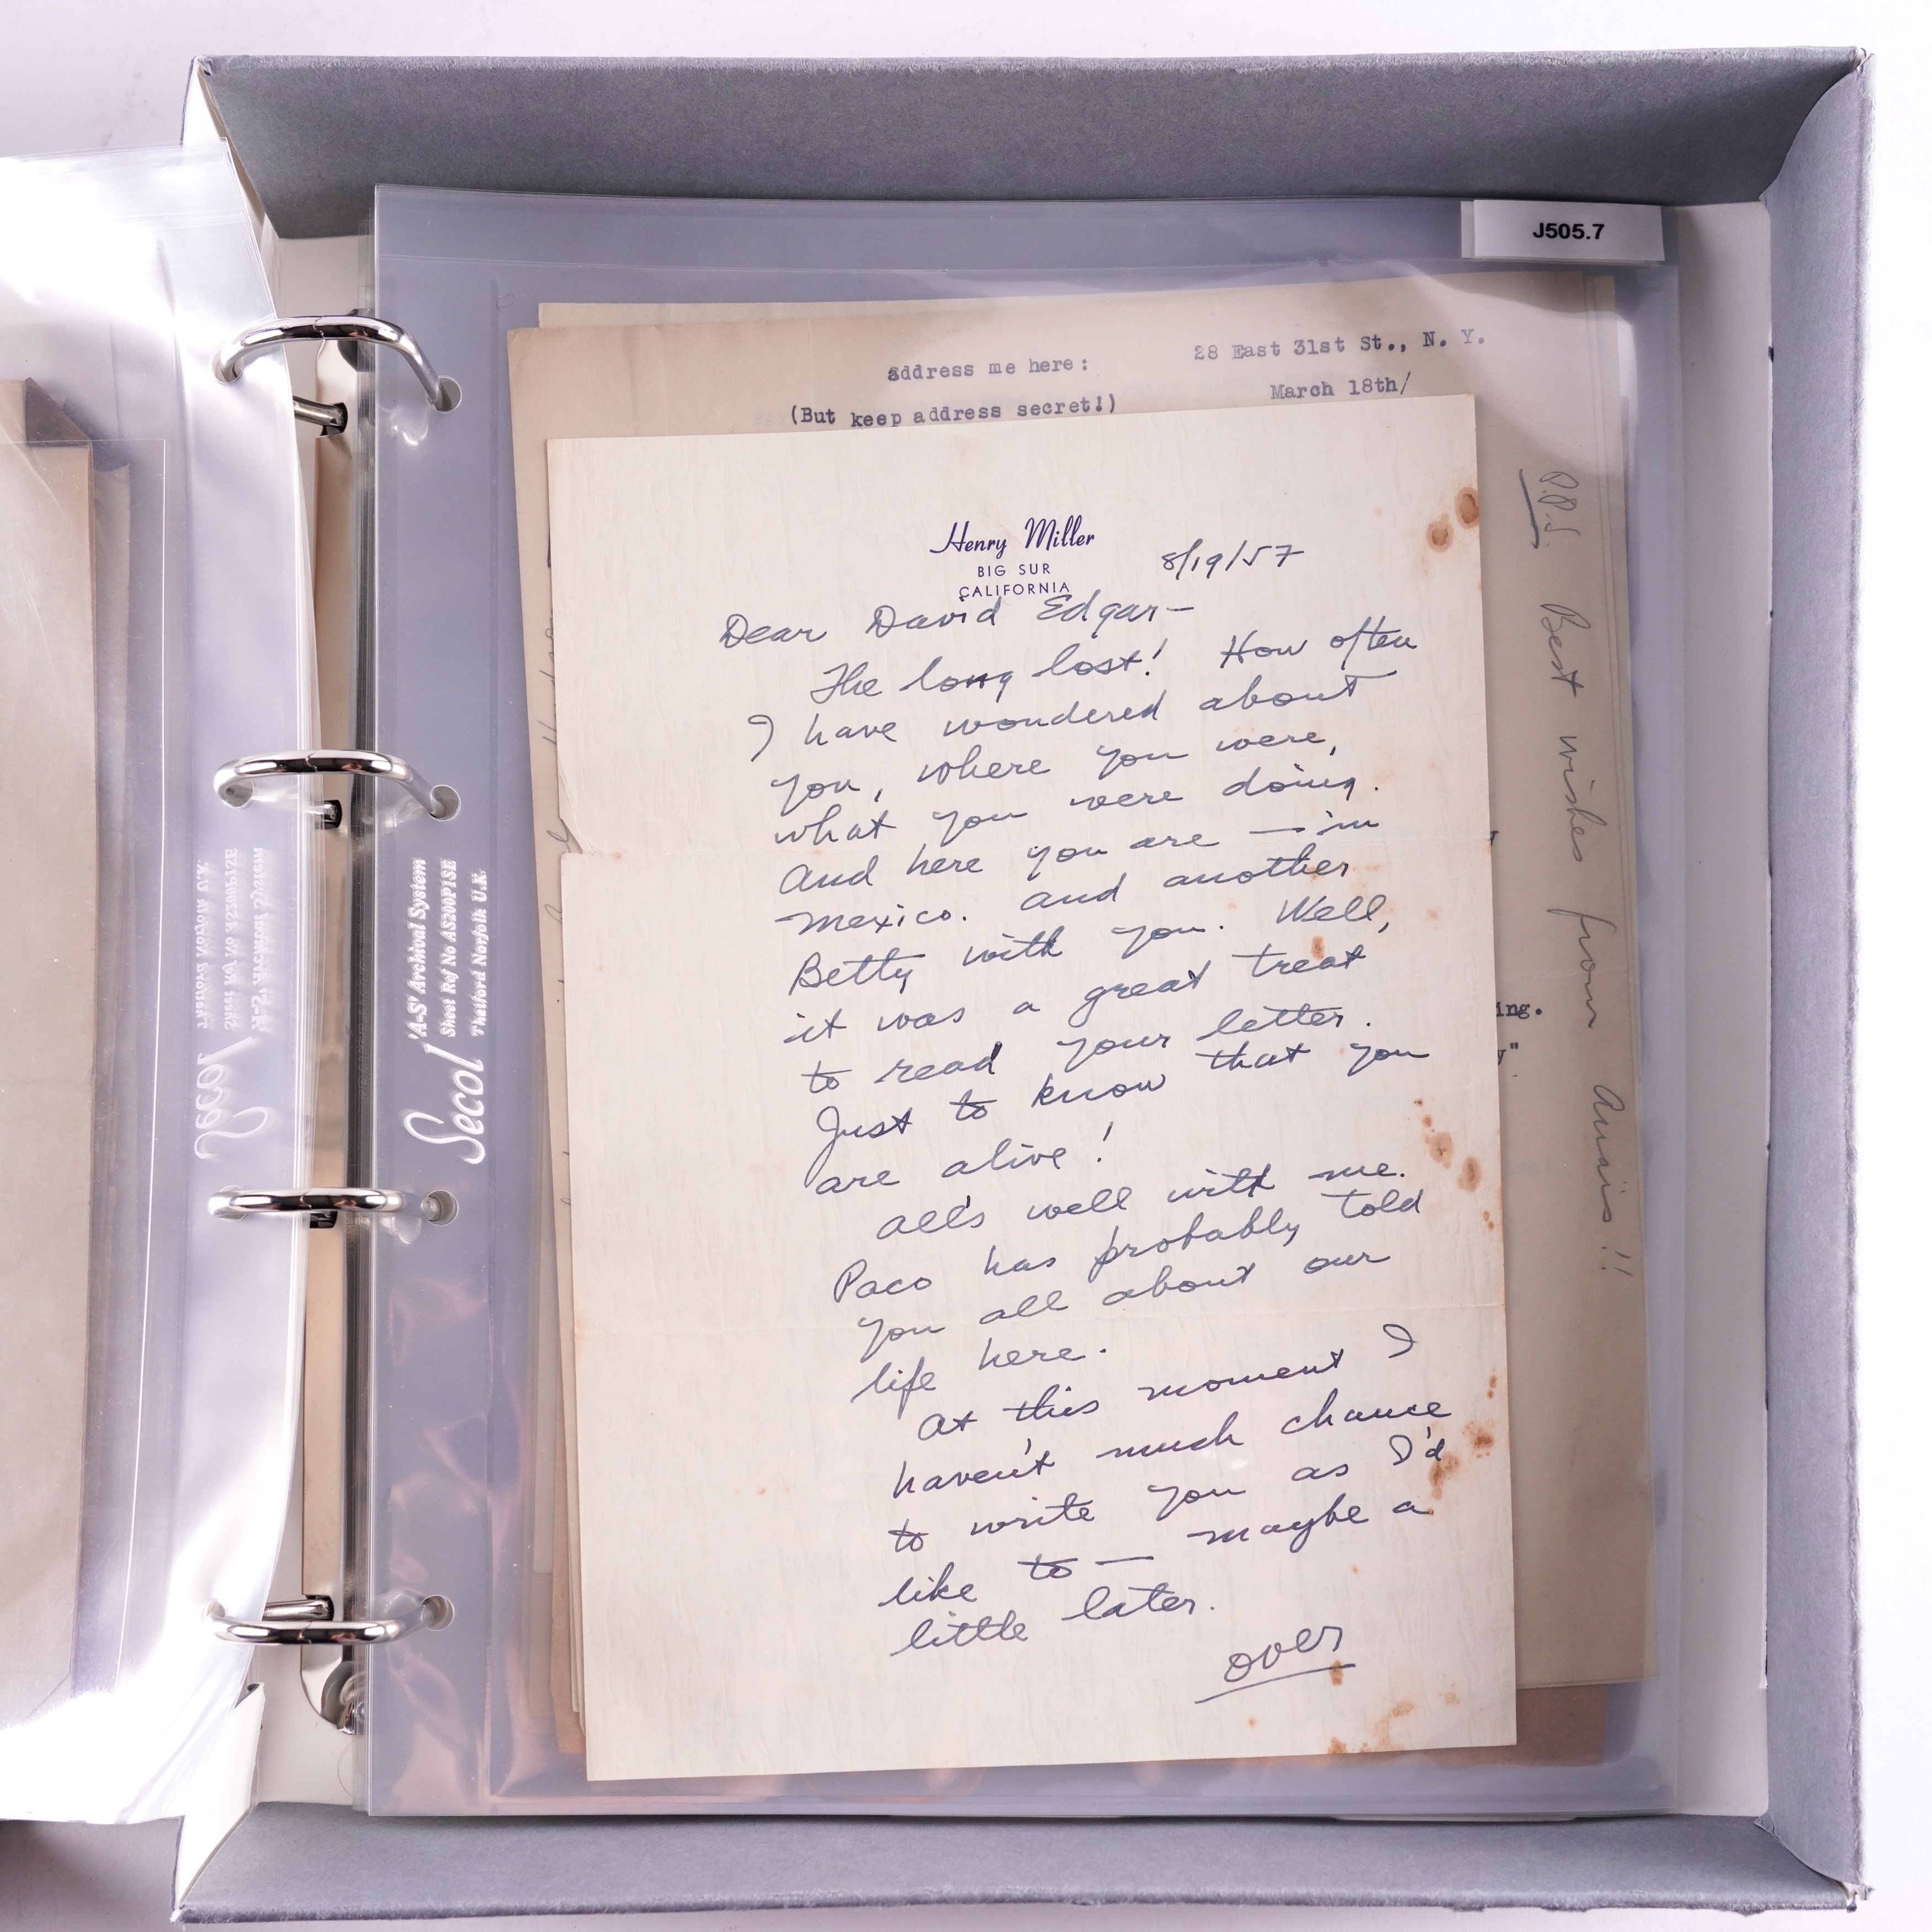 J505.7
28 East 31st St., N. Y.
address me here:
March 18th/
(But keep address secret!)
Henry Miller
BIG SUR
CALIFORNIA
8/19/57
Dear David Edgar—
The long lost! How often
I have wondered about
you, where you were,
what you were doing.
And here you are — in
Mexico. And another
Betty with you. Well,
it was a great treat
to read your letter.
Just to know that you
are alive!
All's well with me.
Paco has probably told
you all about our
life here.
At this moment I
haven't much chance
to write you as I'd
like to — maybe a
little later.
over
P.P.S. Best wishes from Anaïs!!
ing.
y"
Secol 'A-S' Archival System
Sheet Ref No AS200P1SE
Thetford Norfolk U.K.